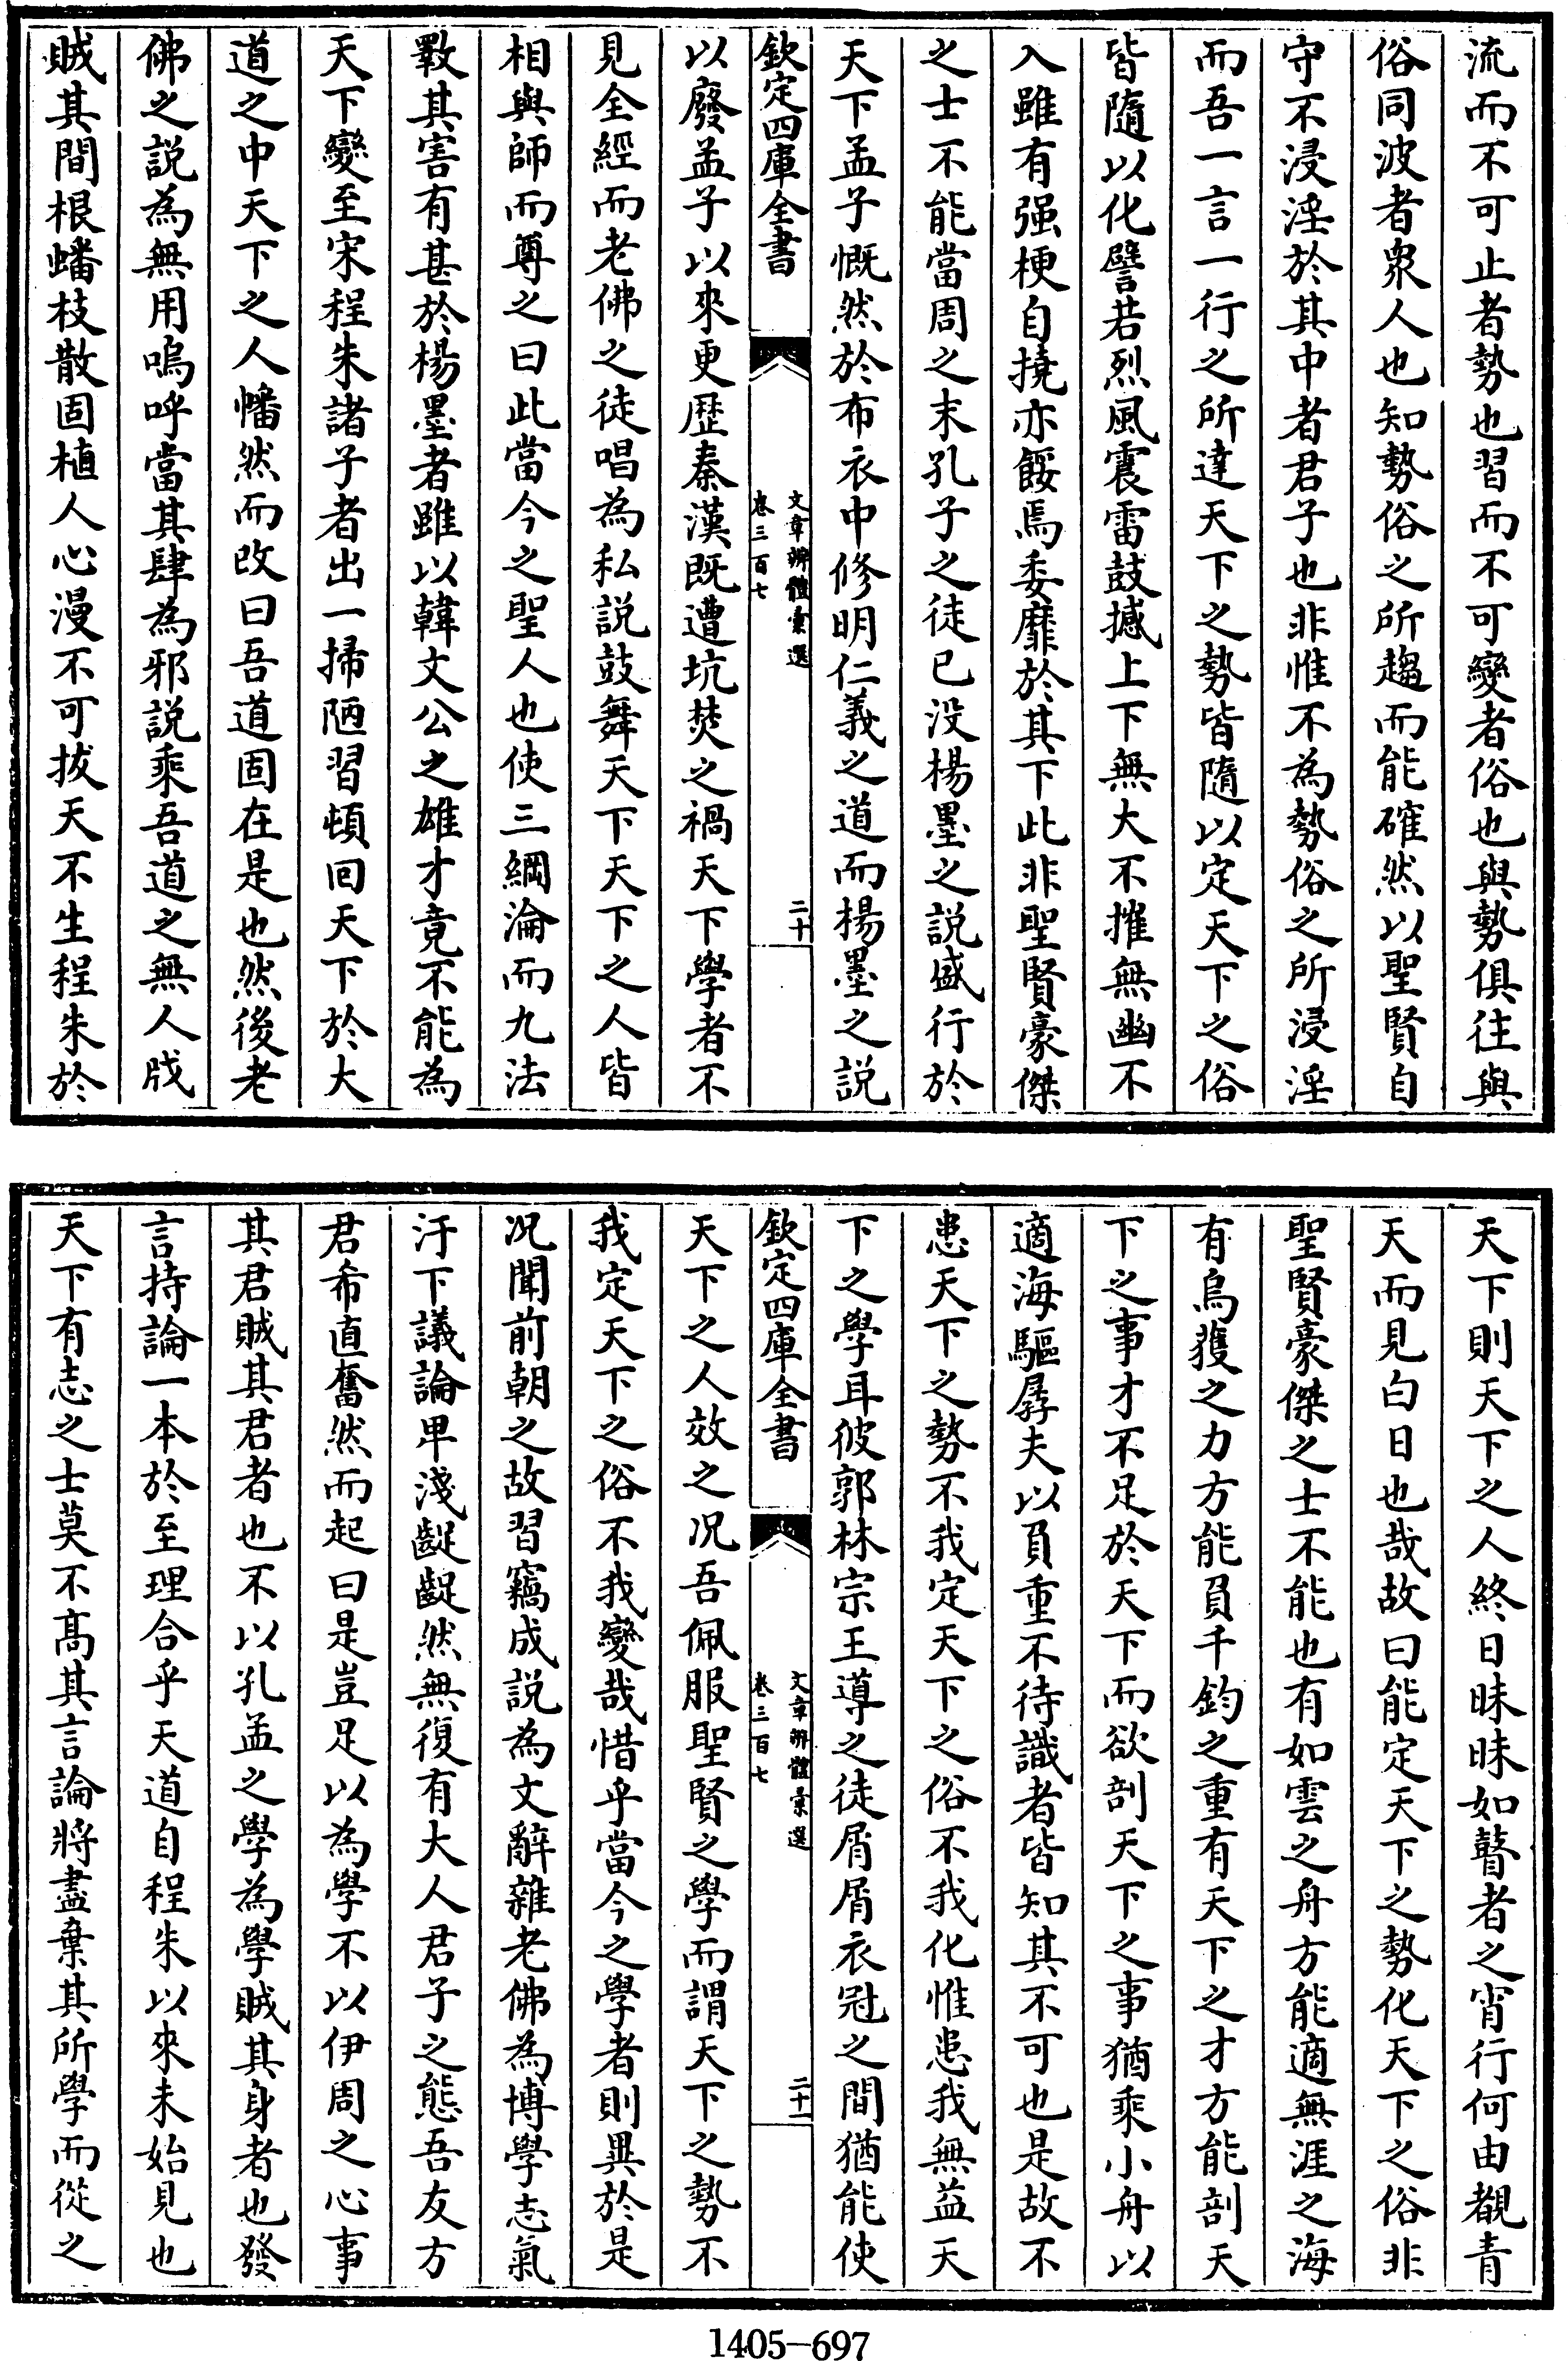 流而不可止者勢也習而不可變者俗也與勢俱往與
俗同波者衆人也知勢俗之所趨而能確然以聖賢自
守不浸淫於其中者君子也非惟不為勢俗之所浸淫
而吾一言一行之所達天下之勢皆隨以定天下之俗
皆隨以化譬若烈風震雷鼓撼上下無大不摧無幽不
入雖有强梗自撓亦餒焉委靡於其下此非聖賢豪傑
之士不能當周之末孔子之徒已没楊墨之説盛行於
天下孟子慨然於布衣中修明仁義之道而楊墨之説
欽定四庫全書
文章辨體彙選
卷三百七
二十
以廢孟子以來更歷秦漢既遭坑焚之禍天下學者不
見全經而老佛之徒唱為私説鼓舞天下天下之人皆
相與師而尊之曰此當今之聖人也使三綱淪而九法
斁其害有甚於楊墨者雖以韓文公之雄才竟不能為
天下變至宋程朱諸子者出一掃陋習頓回天下於大
道之中天下之人幡然而改曰吾道固在是也然後老
佛之説為無用嗚呼當其肆為邪説乘吾道之無人戕
賊其間根蟠枝散固植人心漫不可拔天不生程朱於
天下則天下之人終日昧昧如瞽者之宵行何由覩青
天而見白日也哉故曰能定天下之勢化天下之俗非
聖賢豪傑之士不能也有如雲之舟方能適無涯之海
有烏獲之力方能負千鈞之重有天下之才方能剖天
下之事才不足於天下而欲剖天下之事猶乘小舟以
適海驅孱夫以負重不待識者皆知其不可也是故不
患天下之勢不我定天下之俗不我化惟患我無益天
下之學耳彼郭林宗王導之徒屑屑衣冠之間猶能使
欽定四庫全書
文章辨體彙選
卷三百七
二十一
天下之人效之况吾佩服聖賢之學而謂天下之勢不
我定天下之俗不我變哉惜乎當今之學者則異於是
况聞前朝之故習竊成説為文辭雜老佛為博學志氣
汙下議論卑淺齪齪然無復有大人君子之態吾友方
君希直奮然而起曰是豈足以為學不以伊周之心事
其君賊其君者也不以孔孟之學為學賊其身者也發
言持論一本於至理合乎天道自程朱以來未始見也
天下有志之士莫不高其言論將盡棄其所學而從之
1405-697